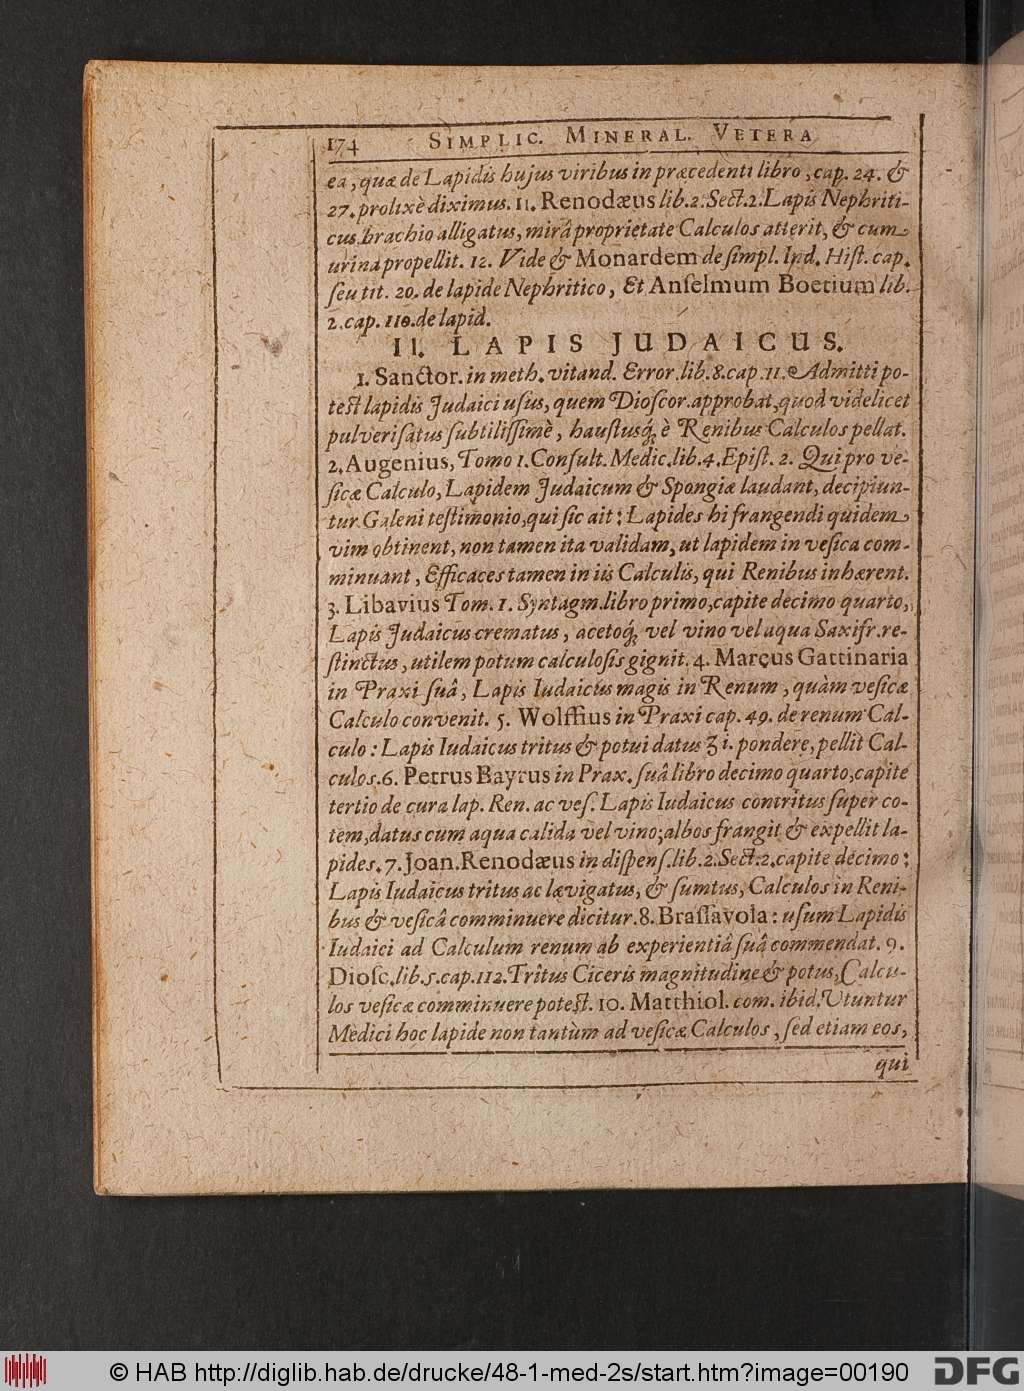 174 SIMPLIC. MINERAL. VETERA
ea, quæ de Lapidis hujus viribus in præcedenti libro, cap. 24. &
27. prolixè diximus. 11. Renodæus lib. 2. Sect. 2. Lapis Nephriti-
cus brachio alligatus, mirâ proprietate Calculos atterit, & cum
urina propellit. 12. Vide & Monardem de ſimpl. Ind. Hiſt. cap.
ſeu tit. 20. de lapide Nephritico, Et Anſelmum Boetium lib.
2. cap. 110. de lapid.
II. LAPIS JUDAICUS.
1. Sanctor. in meth. vitand. Error. lib. 8. cap. 11. Admitti po-
test lapidis Judaici uſus, quem Dioſcor. approbat, quod videlicet
pulveriſatus ſubtiliſſimè, hauſtusq́; è Renibus Calculos pellat.
2. Augenius, Tomo 1. Conſult. Medic. lib. 4. Epiſt. 2. Qui pro ve-
ſicæ Calculo, Lapidem Judaicum & Spongiæ laudant, decipiun-
tur Galeni teſtimonio, qui ſic ait: Lapides hi frangendi quidem
vim obtinent, non tamen ita validam, ut lapidem in veſica com-
minuant, Efficaces tamen in iis Calculis, qui Renibus inhærent.
3. Libavius Tom. 1. Syntagm. libro primo, capite decimo quarto,
Lapis Judaicus crematus, acetoq́; vel vino vel aqua Saxifr. re-
ſtinctus, utilem potum calculoſis gignit. 4. Marcus Gattinaria
in Praxi ſuâ, Lapis Iudaicus magis in Renum, quàm veſicæ
Calculo convenit. 5. Wolffius in Praxi cap. 49. de renum Cal-
culo: Lapis Iudaicus tritus & potui datus ʒ i. pondere, pellit Cal-
culos. 6. Petrus Bayrus in Prax. ſuâ libro decimo quarto, capite
tertio de cura lap. Ren. ac veſ. Lapis Iudaicus contritus ſuper co-
tem, datus cum aqua calida vel vino; albos frangit & expellit la-
pides. 7. Joan. Renodæus in diſpenſ. lib. 2. Sect. 2. capite decimo:
Lapis Iudaicus tritus ac lævigatus, & ſumtus, Calculos in Reni-
bus & veſicâ comminuere dicitur. 8. Braſſavola: uſum Lapidis
Iudaici ad Calculum renum ab experientiâ ſuâ commendat. 9.
Dioſc. lib. 5. cap. 112. Tritus Ciceris magnitudine & potus, Calcu-
los veſicæ comminuere potest. 10. Matthiol. com. ibid. Utuntur
Medici hoc lapide non tantùm ad veſicæ Calculos, ſed etiam eos,
qui
© HAB http://diglib.hab.de/drucke/48-1-med-2s/start.htm?image=00190 DFG